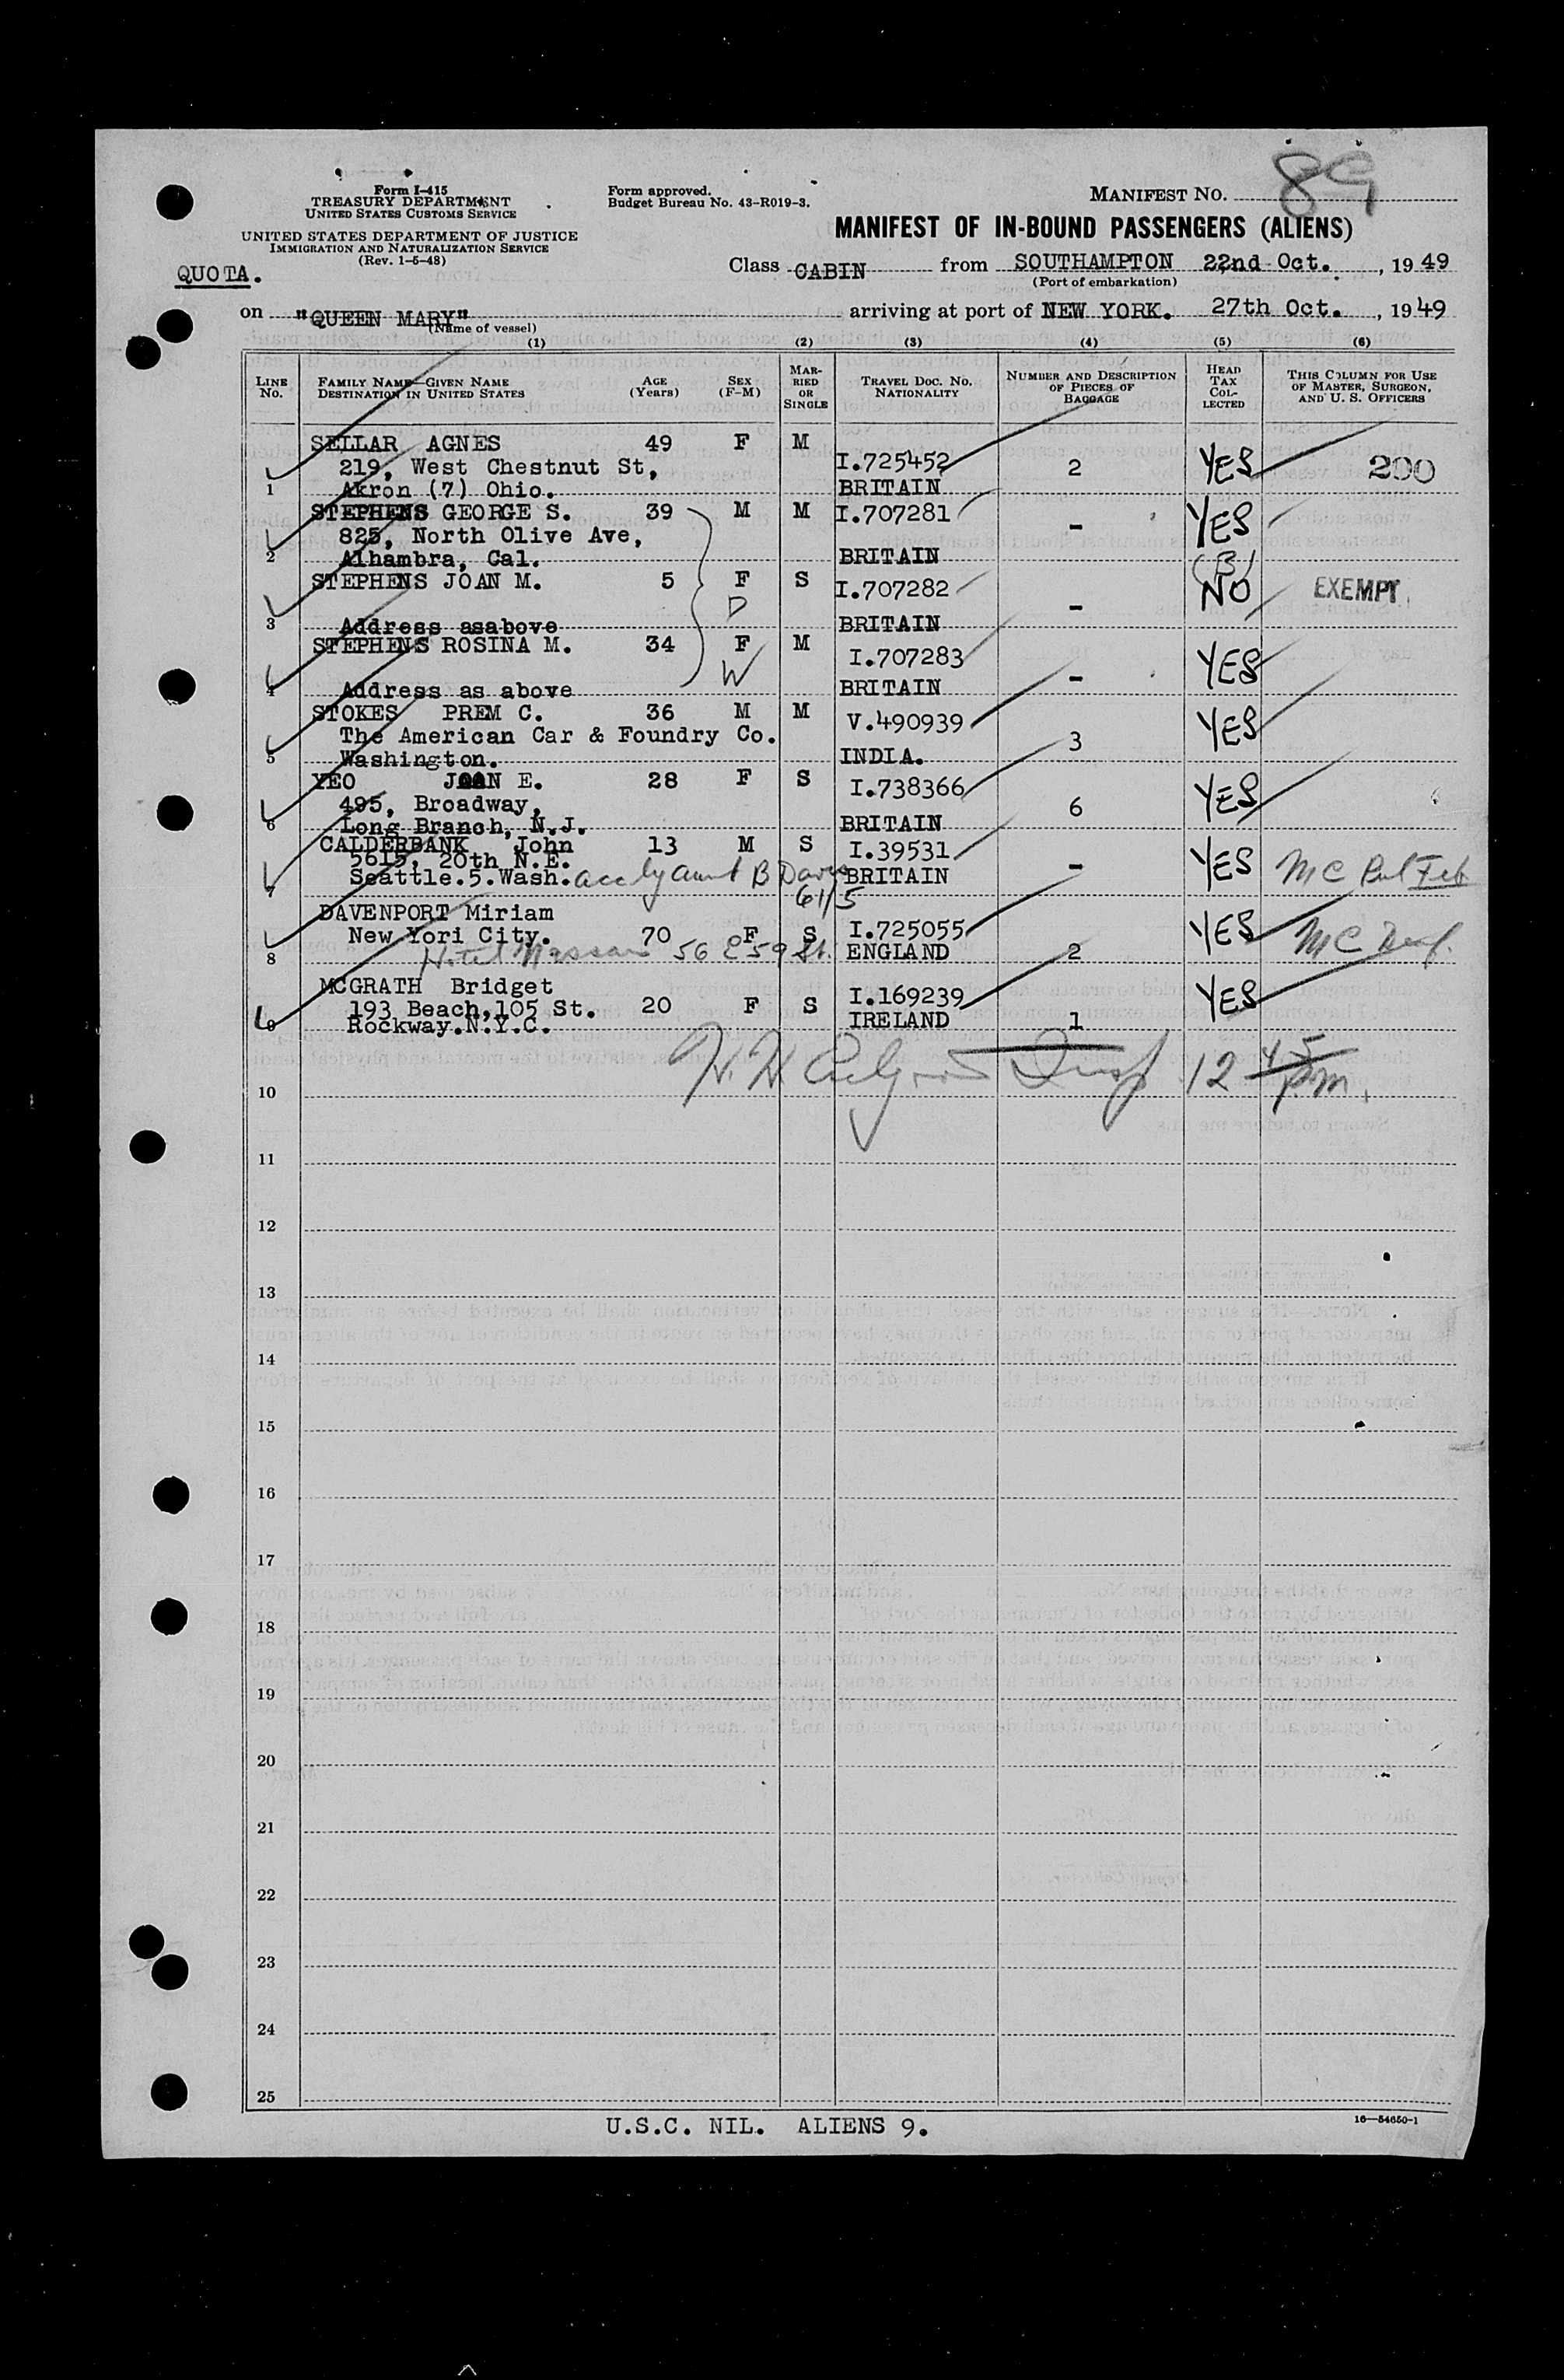 89
Form I-415
TREASURY DEPARTMENT
UNITED STATES CUSTOMS SERVICE
UNITED STATES DEPARTMENT OF JUSTICE
IMMIGRATION AND NATURALIZATION SERVICE
(Rev. 1-5-48)
Form approved.
Budget Bureau No. 43-R019-3.
MANIFEST NO.
MANIFEST OF IN-BOUND PASSENGERS (ALIENS)
QUOTA.
Class CABIN from SOUTHAMPTON 22nd Oct. , 19 49
(Port of embarkation)
on "QUEEN MARY" arriving at port of NEW YORK. 27th Oct. , 19 49
(Name of vessel)
(1) (2) (3) (4) (5) (6)
LINE No. FAMILY NAME—GIVEN NAME DESTINATION IN UNITED STATES AGE (Years) SEX (F-M) MARRIED OR SINGLE TRAVEL DOC. NO. NATIONALITY NUMBER AND DESCRIPTION OF PIECES OF BAGGAGE HEAD TAX COLLECTED THIS COLUMN FOR USE OF MASTER, SURGEON, AND U. S. OFFICERS
SELLAR AGNES 49 F M
219, West Chestnut St, I.725452 2 YES 200
1 Akron (7) Ohio. BRITAIN
STEPHENS GEORGE S. 39 M M I.707281 - YES
825, North Olive Ave,
2 Alhambra, Cal. BRITAIN (B)
STEPHENS JOAN M. 5 F S I.707282 - NO EXEMPT
D
3 Address asabove BRITAIN
STEPHENS ROSINA M. 34 F M I.707283 - YES
W
4 Address as above BRITAIN
STOKES PREM C. 36 M M V.490939 YES
The American Car & Foundry Co. 3
5 Washington. INDIA.
YEO JOAN E. 28 F S I.738366 YES
495, Broadway, 6
6 Long Branch, N.J. BRITAIN
CALDERBANK John 13 M S I.39531
5615, 20th N.E. - YES
Seattle.5.Wash. accby aunt B Davis BRITAIN
7 61/5
DAVENPORT Miriam
New Yori City. 70 F S I.725055 YES
8 Hotel Nassau 56 E 59 St. ENGLAND 2
MCGRATH Bridget
193 Beach,105 St. 20 F S I.169239 YES
9 Rockway.N.Y.C. IRELAND 1
10 12 45 p.m.
11
12
13
14
15
16
17
18
19
20
21
22
23
24
25
U.S.C. NIL. ALIENS 9.
16—54650-1